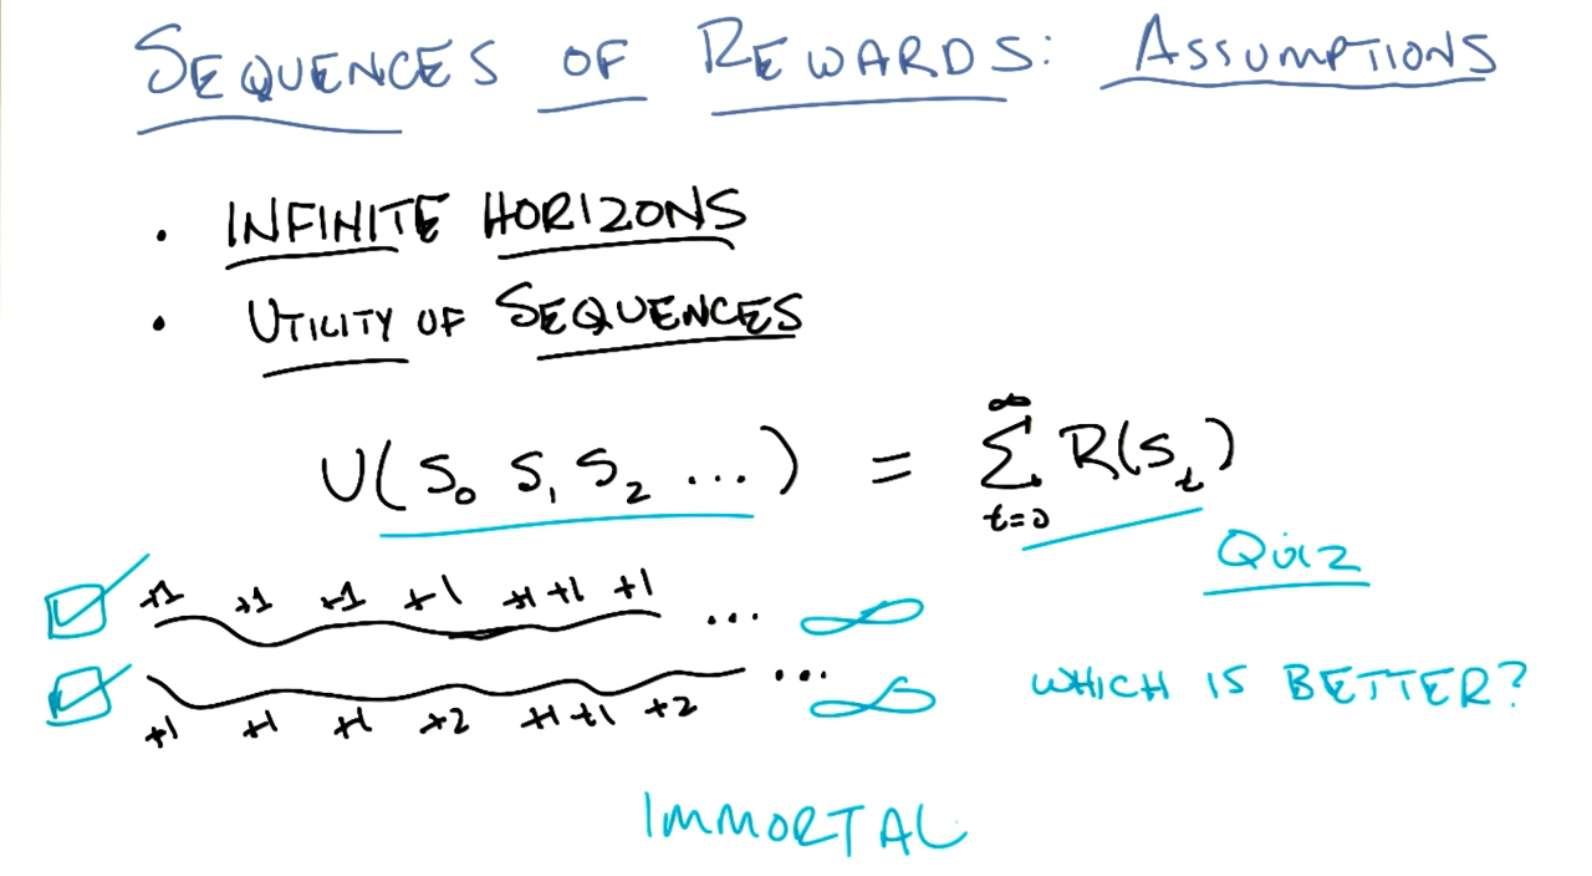 SEQUENCES OF REWARDS: ASSUMPTIONS
• INFINITE HORIZONS
• UTILITY OF SEQUENCES
U(S₀ S₁ S₂ ...) = ∞∑t=0 R(Sₜ)
QUIZ
+1 +1 +1 +1 +1 +1 +1 ... ∞
+1 +1 +1 +2 +1 +1 +2 ... ∞
WHICH IS BETTER?
IMMORTAL